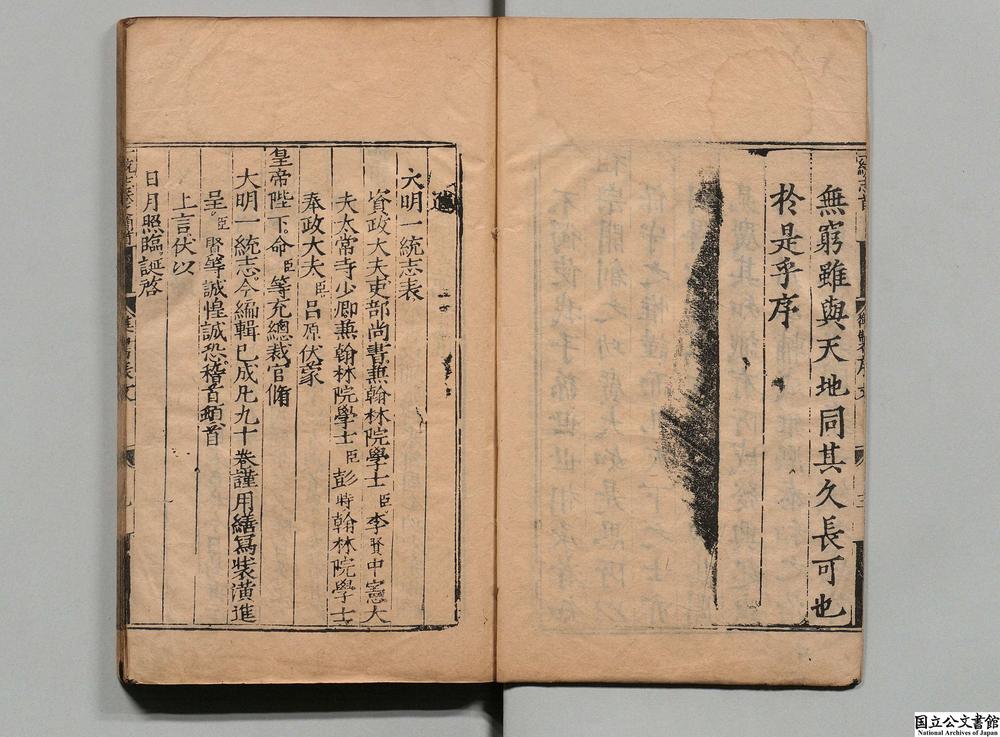 無窮雖與天地同其久長可也
於是乎序
進
大明一統志表
資政大夫吏部尚書兼翰林院學士臣李賢中憲大
夫太常寺少卿兼翰林院學士臣彭時翰林院學士
奉政大夫臣呂原伏蒙
皇帝陛下命臣等充總裁官脩
大明一統志今編輯已成凡九十卷謹用繕寫裝潢進
呈臣賢等誠惶誠恐稽首頓首
上言伏以
日月照臨誕啓
国立公文書館
National Archives of Japan